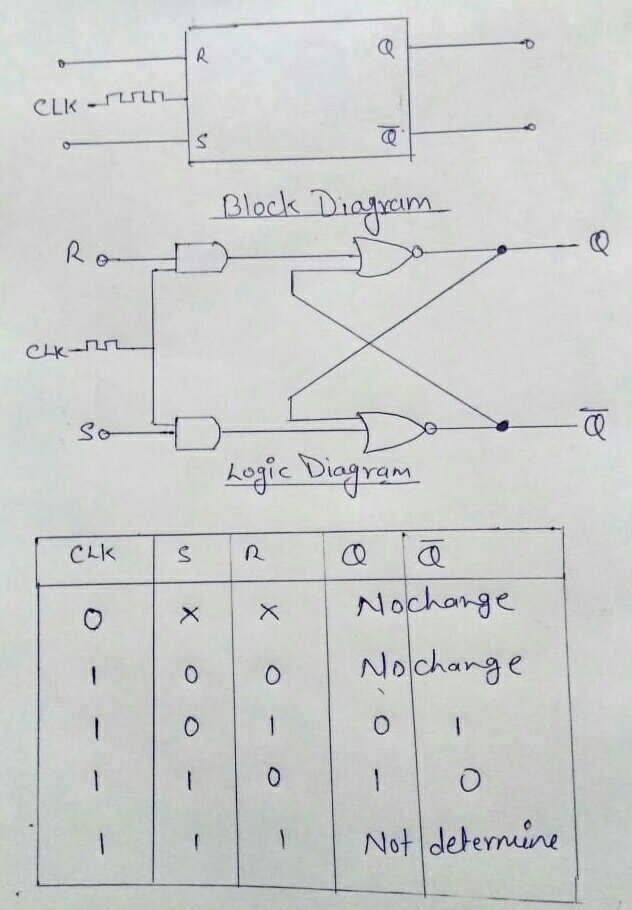 R Q
CLK
S Q̅
Block Diagram
R Q
CLK
S Q̅
Logic Diagram
CLK S R Q Q̅
0 × × Nochange
1 0 0 No change
1 0 1 0 1
1 1 0 1 0
1 1 1 Not determine